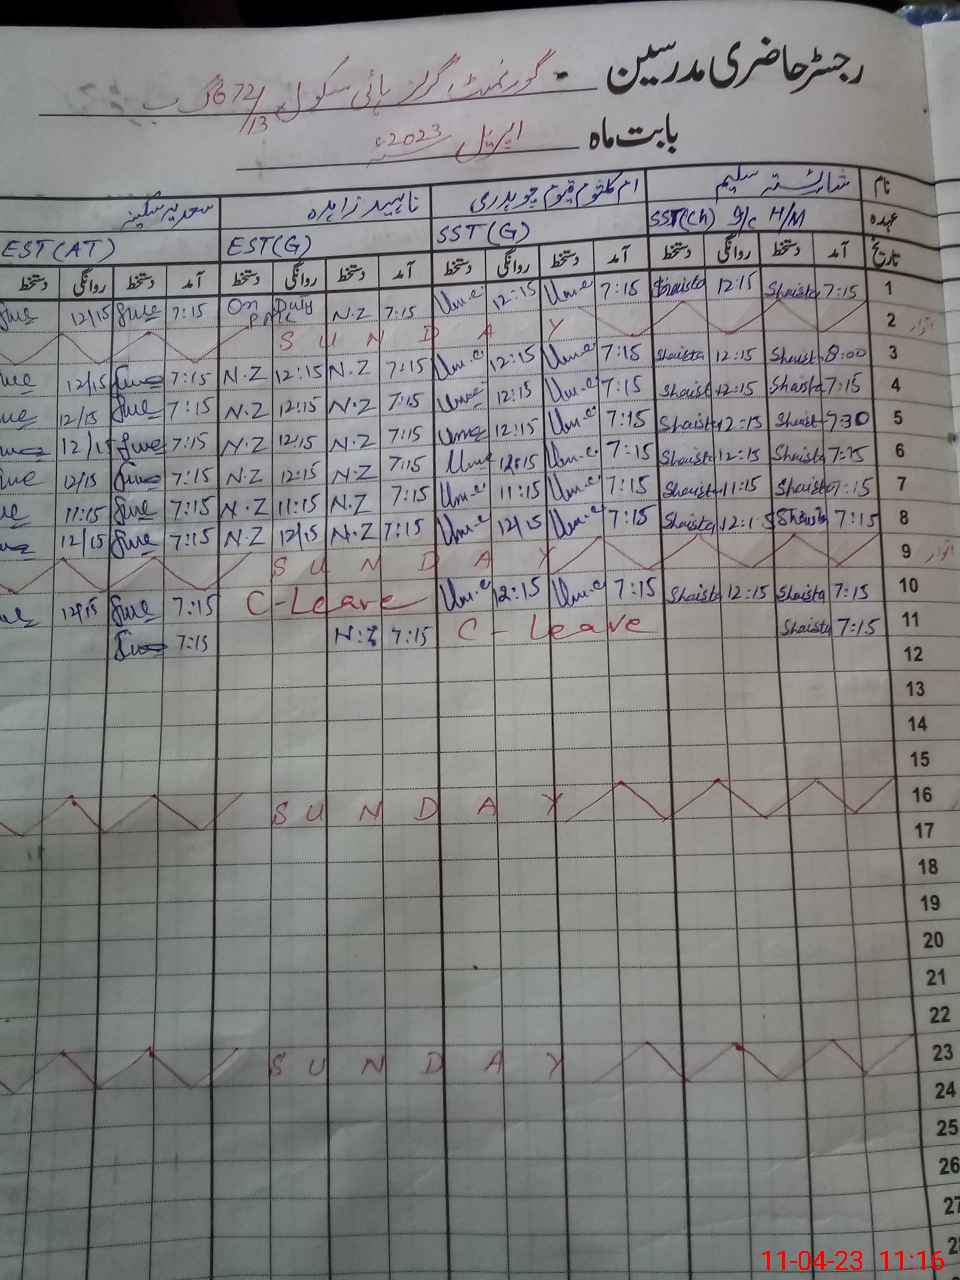 رجسٹر حاضری مدرسین - گورنمنٹ گرلز ہائی سکول 672/13 گ ب
بابت ماہ اپریل 2023ء
نام شائستہ سلیم ام کلثوم قیوم چوہدری ناہید زاہدہ سعدیہ سکینہ
عہدہ SST(Ch) I/c H/M SST(G) EST(G) EST(AT)
تاریخ آمد دستخط روانگی دستخط آمد دستخط روانگی دستخط آمد دستخط روانگی دستخط آمد دستخط روانگی دستخط
1 7:15 Shaista 12:15 Shaista 7:15 Um.e 12:15 Um.e 7:15 N.Z On Duty 7:15 12/15
2 اتوار S U N D A Y
3 8:00 Shaista 12:15 Shaista 7:15 Um.e 12:15 Um.e 7:15 N.Z 12:15 N.Z 7:15 12/15
4 7:15 Shaista 12:15 Shaista 7:15 Um.e 12:15 Um.e 7:15 N.Z 12:15 N.Z 7:15 12/15
5 7:30 Shaista 12:15 Shaista 7:15 Um.e 12:15 Um.e 7:15 N.Z 12/15 N.Z 7:15 12/15
6 7:15 Shaista 12:15 Shaista 7:15 Um.e 12:15 Um.e 7:15 N.Z 12:15 N.Z 7:15 12/15
7 7:15 Shaista 11:15 Shaista 7:15 Um.e 11:15 Um.e 7:15 N.Z 11:15 N.Z 7:15 11:15
8 7:15 Shaista 12:15 Shaista 7:15 Um.e 12/15 Um.e 7:15 N.Z 12/15 N.Z 7:15 12/15
9 اتوار S U N D A Y
10 7:15 Shaista 12:15 Shaista 7:15 Um.e 12:15 Um.e C-Leave 7:15 12/15
11 7:15 Shaista C-Leave 7:15 N.Z 7:15
12
13
14
15
16 S U N D A Y
17
18
19
20
21
22
23 S U N D A Y
24
25
26
27
28
11-04-23 11:16